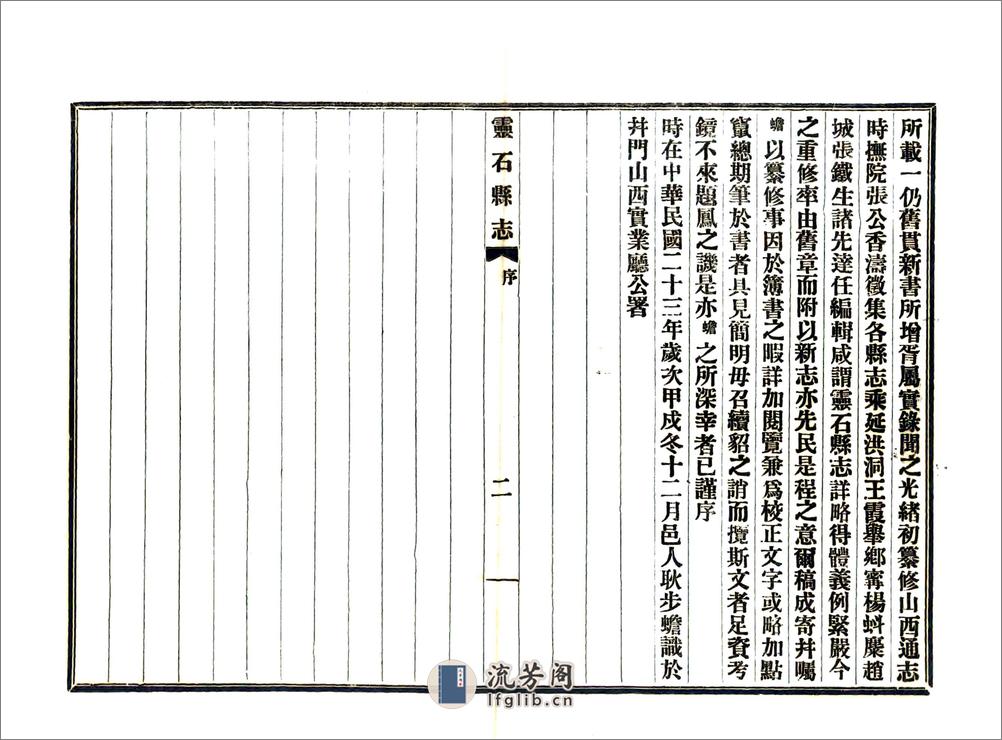 所載一仍舊貫新書所增胥屬實錄聞之光緒初纂修山西通志
時撫院張公香濤徵集各縣志乘延洪洞王霞舉鄉寗楊蚪麋趙
城張鐵生諸先達任編輯咸謂靈石縣志詳略得體義例緊嚴今
之重修率由舊章而附以新志亦先民是程之意爾稿成寄幷囑
蟾以纂修事因於簿書之暇詳加閱覽兼爲校正文字或略加點
竄總期筆於書者具見簡明毋召續貂之誚而攬斯文者足資考
鏡不來題鳳之譏是亦蟾之所深幸者已謹序
時在中華民國二十三年歲次甲戍冬十二月邑人耿步蟾識於
幷門山西實業廳公署
靈石縣志 序 二
流芳阁
lfglib.cn